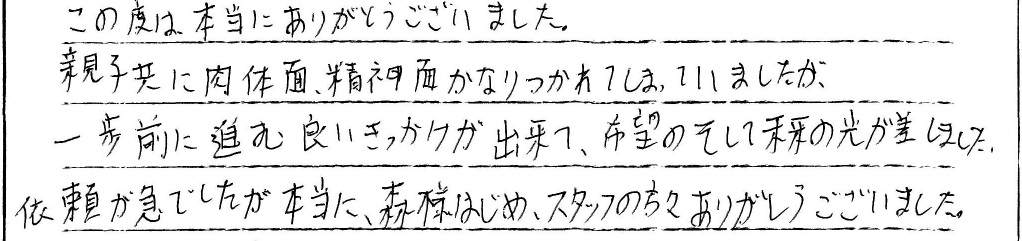 この度は、本当にありがとうございました。
親子共に肉体面、精神面かなりつかれてしまっていましたが、
一歩前に進む良いきっかけが出来て、希望のそして未来の光が差しました。
依頼が急でしたが本当に、森様はじめ、スタッフの方々ありがとうございました。